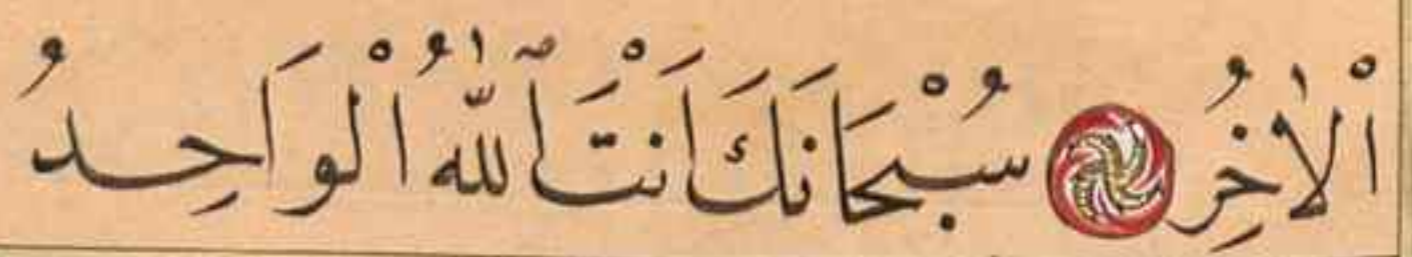 اْلاٰخِرُ سُبْحَانَكَ اَنْتَ اللّٰهُ الْوَاحِدُ